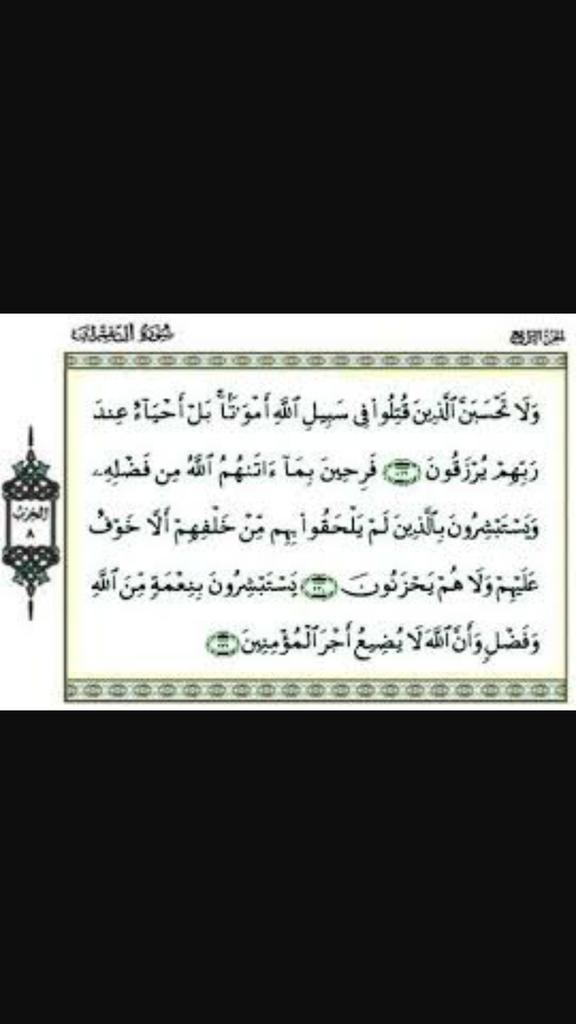 الجزء الرابع
سورة آل عمران
وَلَا تَحْسَبَنَّ ٱلَّذِينَ قُتِلُوا۟ فِى سَبِيلِ ٱللَّهِ أَمْوَٰتًۢا ۚ بَلْ أَحْيَآءٌ عِندَ
رَبِّهِمْ يُرْزَقُونَ ١٦٩ فَرِحِينَ بِمَآ ءَاتَىٰهُمُ ٱللَّهُ مِن فَضْلِهِۦ
وَيَسْتَبْشِرُونَ بِٱلَّذِينَ لَمْ يَلْحَقُوا۟ بِهِم مِّنْ خَلْفِهِمْ أَلَّا خَوْفٌ
عَلَيْهِمْ وَلَا هُمْ يَحْزَنُونَ ١٧٠ يَسْتَبْشِرُونَ بِنِعْمَةٍ مِّنَ ٱللَّهِ
وَفَضْلٍ وَأَنَّ ٱللَّهَ لَا يُضِيعُ أَجْرَ ٱلْمُؤْمِنِينَ ١٧١
الحزب
٨